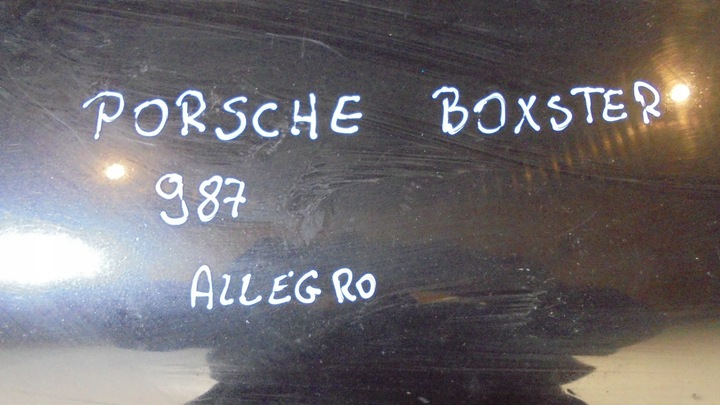 PORSCHE BOXSTER
987
ALLEGRO